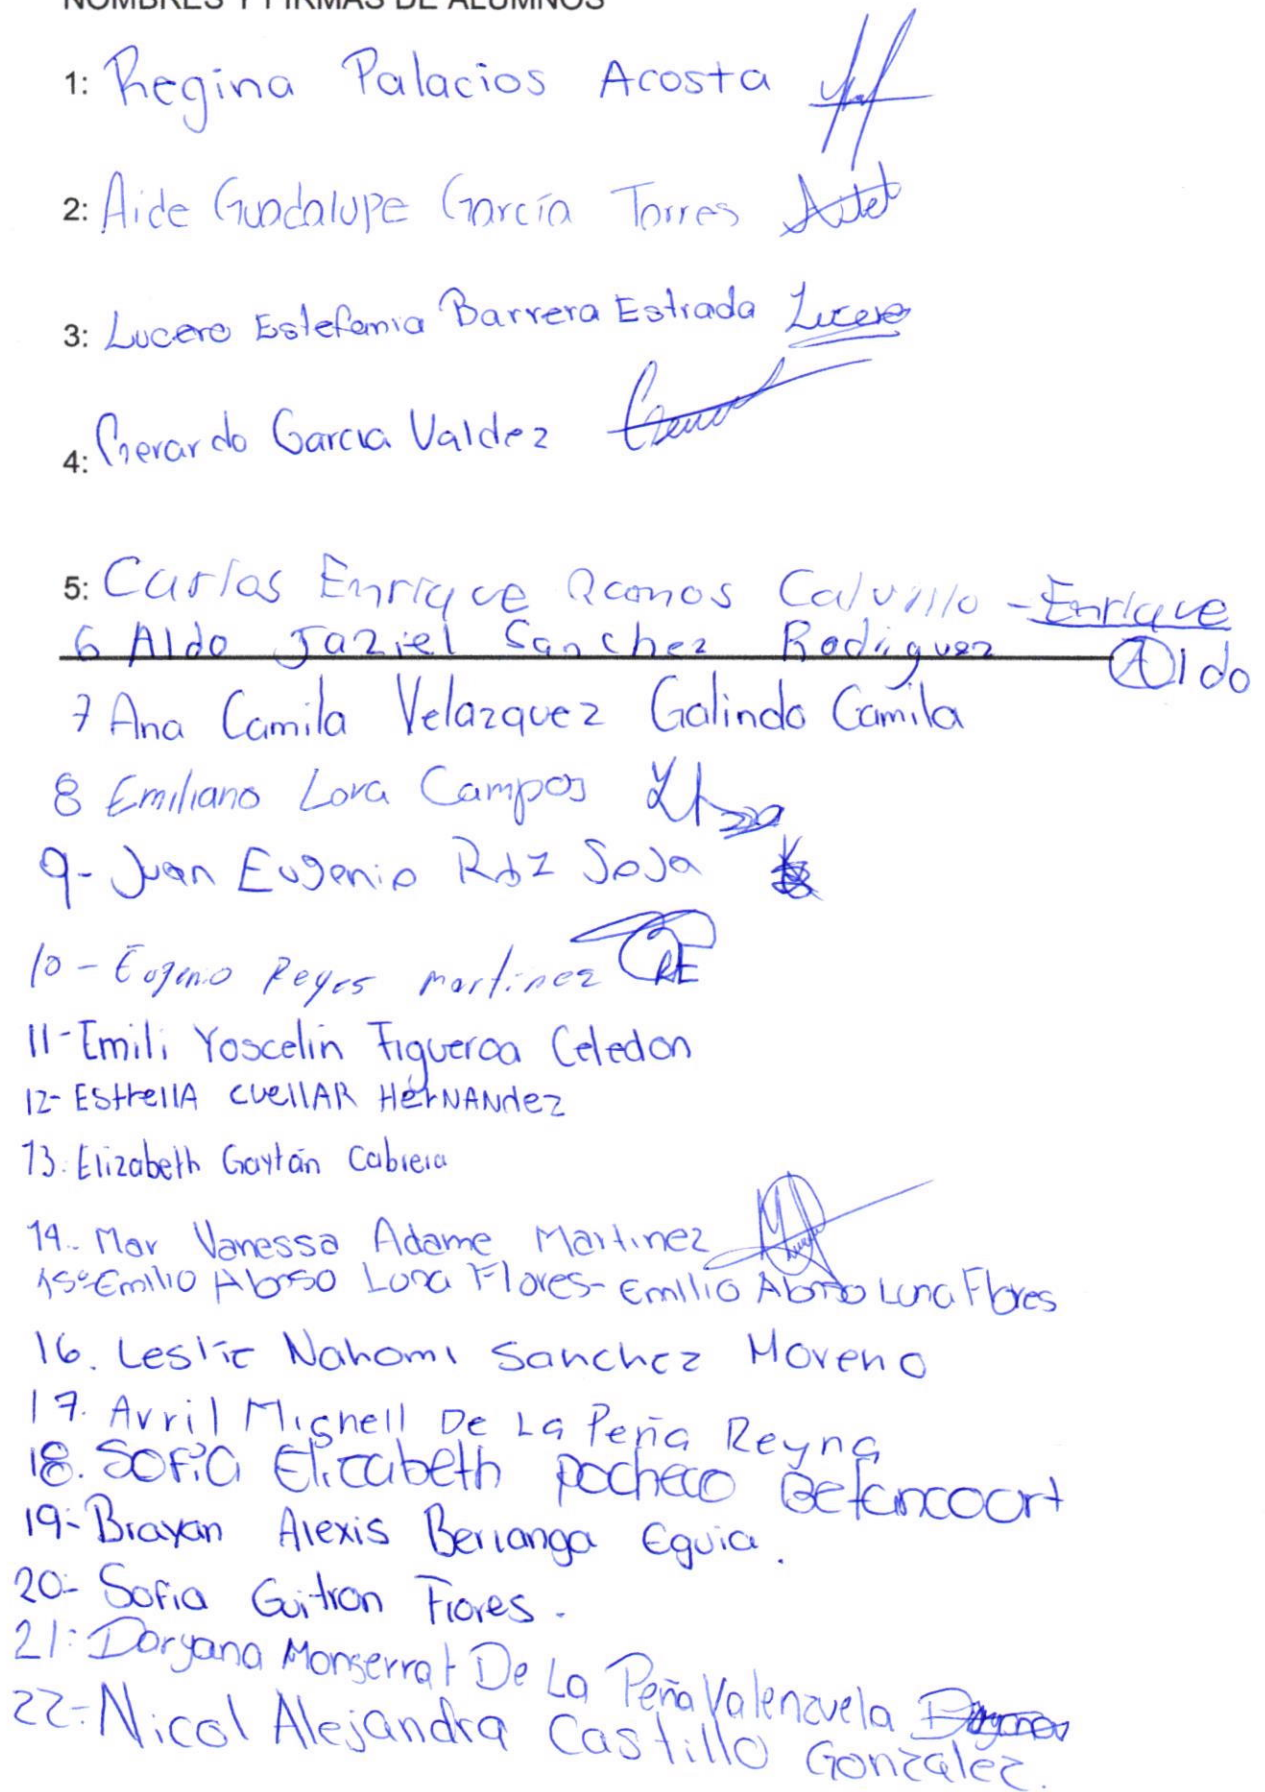 NOMBRES Y FIRMAS DE ALUMNOS
1: Regina Palacios Acosta
2: Aide Guadalupe García Torres
3: Lucero Estefania Barrera Estrada Lucero
4: Gerardo Garcia Valdez
5: Carlos Enrique Ramos Calvillo - Enrique
6 Aldo Jaziel Sanchez Rodriguez Aldo
7 Ana Camila Velazquez Galindo Camila
8 Emiliano Lora Campos
9- Juan Eugenio Rdz Sosa
10 - Eugenio Reyes martinez RE
11- Emili Yoscelin Figueroa Celedon
12- EstrellA CuellAR HérNANdez
13. Elizabeth Gaytán Cabrera
14.- Mar Vanessa Adame Martinez
15- Emilio Alonso Luna Flores- Emilio Alonso Luna Flores
16. Leslie Nahomi Sanchez Moreno
17. Avril Mishell De La Peña Reyna
18. Sofia Elizabeth pacheco Betancourt
19- Brayan Alexis Berlanga Eguia.
20- Sofia Guitron Flores.
21- Doryana Monserrat De La Peña Valenzuela
22- Nicol Alejandra Castillo Gonzalez.